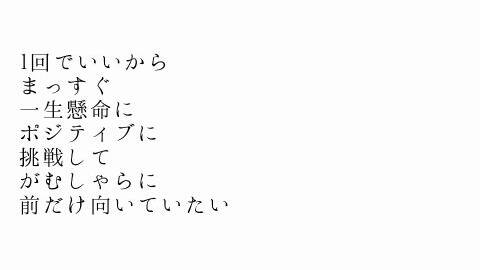 1回でいいから
まっすぐ
一生懸命に
ポジティブに
挑戦して
がむしゃらに
前だけ向いていたい